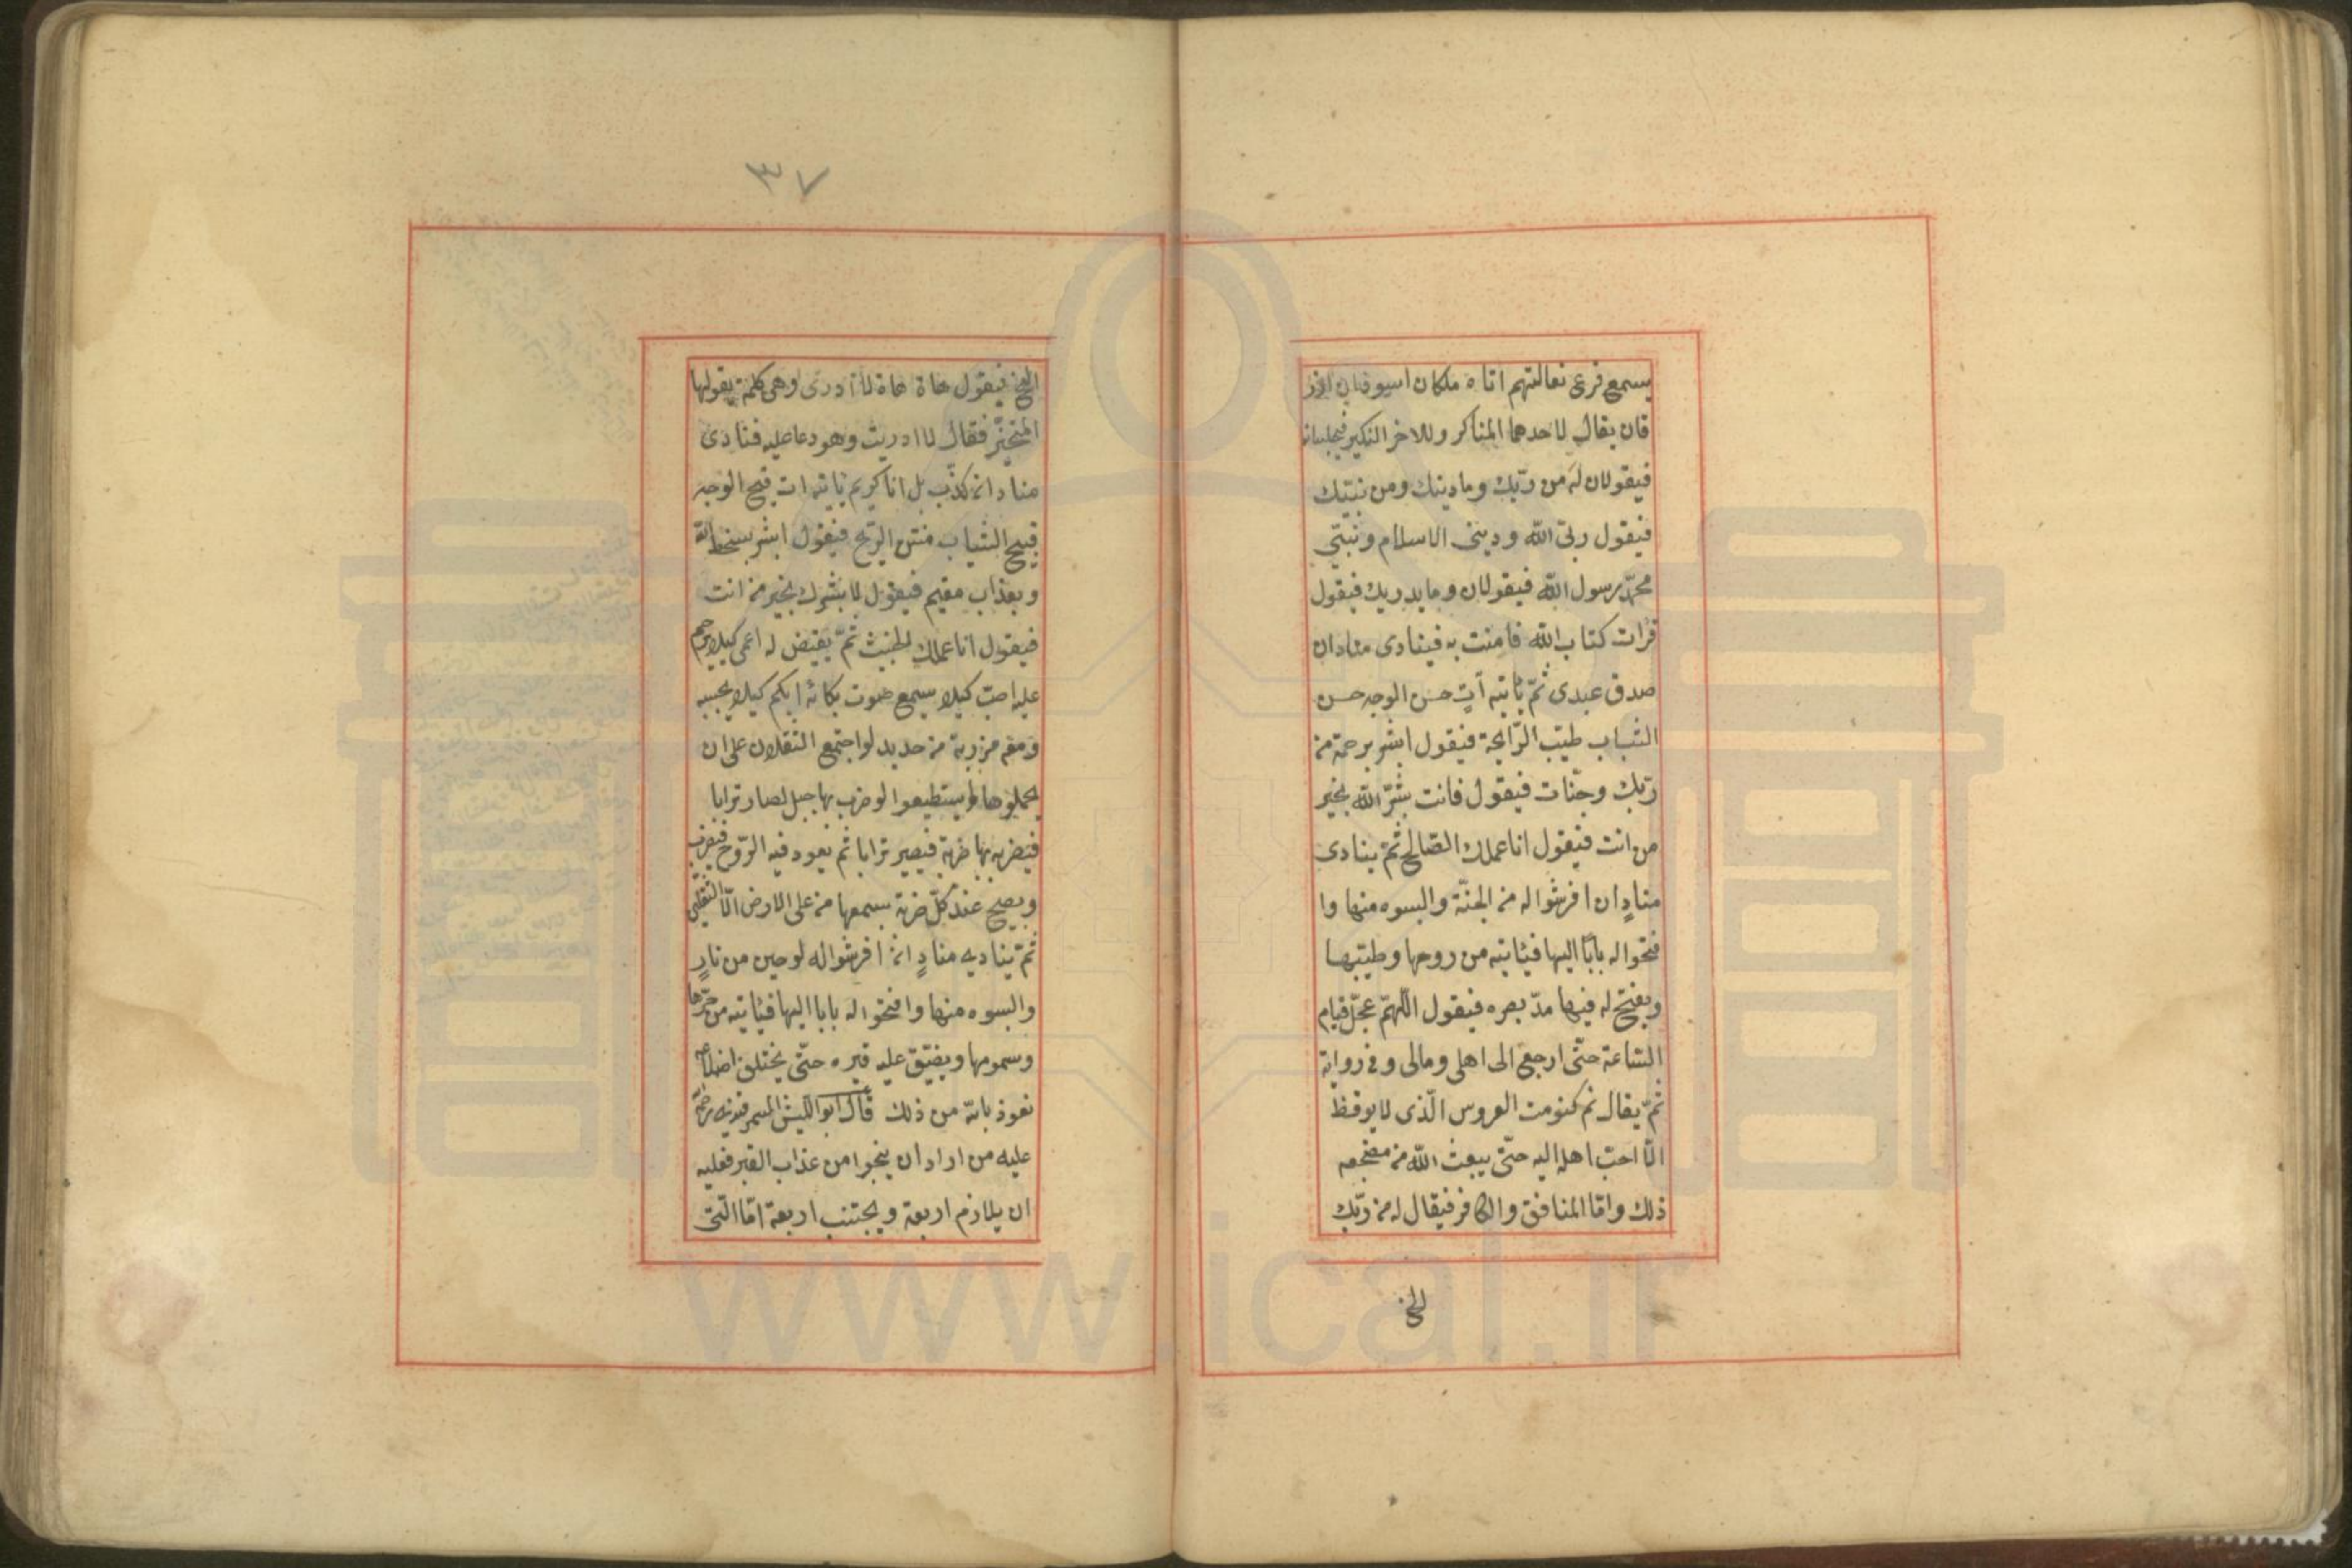 يسمع قرع نعالهم اتاه ملكان اسودان ازر
قان يقال لاحدهما المنكر وللاخر النكير فيجلسانه
فيقولان له من ربّك وما دينك ومن نبيّك
فيقول ربّى اللّه ودينى الاسلام ونبيّي
محمّد رسول اللّه فيقولان وما يدريك فيقول
قرات كتاب اللّه فامنت به فينادى منادان
صدق عبدى ثمّ ياتيه آتٍ حسن الوجه حسن
الثياب طيّب الرّايحة فيقول ابشر برحمة من
ربّك وجنّات فيقول فانت بشّر اللّه بخير
من انت فيقول انا عملك الصّالح ثمّ ينادى
منادٍ ان افرشوا له من الجنّة والبسوه منها وا
فتحوا له بابًا اليها فياتيه من روحها وطيبها
ويفتح له فيها مدّ بصره فيقول اللّهمّ عجّل قيام
السّاعة حتّى ارجع الى اهلى ومالى وفى رواية
ثمّ يقال نم كنومت العروس الّذى لا يوقظ
الّا احبّ اهله اليه حتّى يبعث اللّه من مضجعه
ذلك وامّا المنافق والكافر فيقال له من ربّك
الخ
٣٧
الخ فيقول هاة هاة لا ادرى وهى كلمة يقولها
المتحيّر فقال لا ادريت وهو دعا عليه فنادى
مناد انه كذّب بل انا كريم ياتيه ات قبيح الوجه
قبيح الثياب منتن الرّيح فيقول ابشر بسخط اللّه
وبعذاب مقيم فيقول لا بشّرك بخير من انت
فيقول انا عملك الخبيث ثمّ يقيض له اعمى كيلا يرحم
عليه اصمّ كيلا يسمع صوت بكائه ابكم كيلا يجيبه
ومعه مرزبة من حديد لو اجتمع الثقلان على ان
يحملوها لم يستطيعوا لو ضرب بها جبل لصار ترابا
فيضربه بها ضربة فيصير ترابا ثم يعود فيه الرّوح فيضرب
ويصيح عند كلّ ضربة يسمعها من على الارض الّا الثقلين
ثمّ يناديه منادٍ ان افرشوا له لوحين من نارٍ
والبسوه منها وافتحوا له بابا اليها فياتيه من حرّها
وسمومها ويضيّق عليه قبره حتّى يختلف اضلاعه
نعوذ باللّه من ذلك قال ابو اللّيث السمرقندى رحمة
عليه من اراد ان ينجوا من عذاب القبر فعليه
ان يلازم اربعة ويجتنب اربعة امّا الّتى